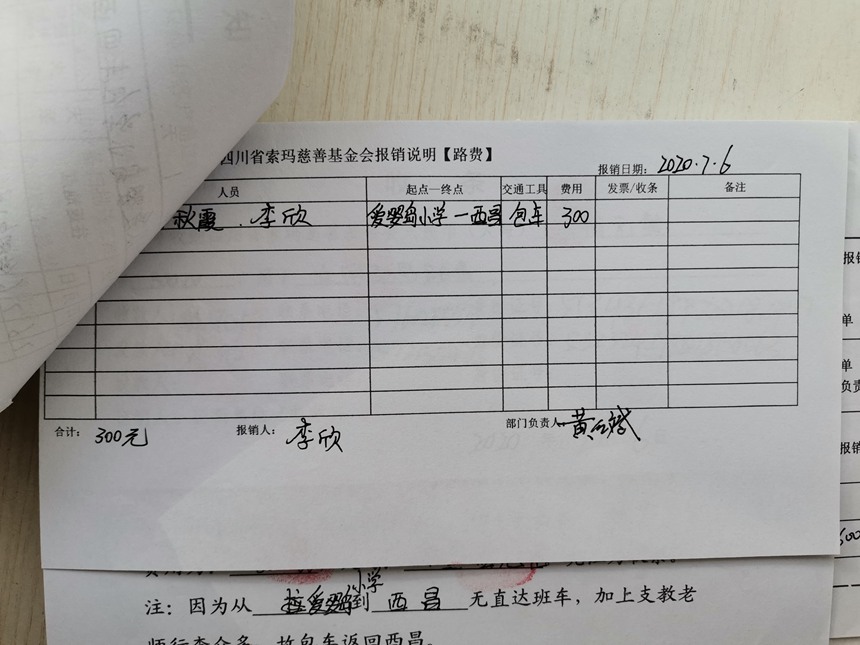 四川省索玛慈善基金会报销说明【路费】
报销日期: 2020.7.6
人员 起点—终点 交通工具 费用 发票/收条 备注
秋霞、李欣 小学—西昌 包车 300
合计: 300元 报销人: 李欣 部门负责人 黄
小学
注：因为从 到 西昌 无直达班车，加上支教老
师行李众多，故包车返回西昌。
报销
单
单
负责
报销